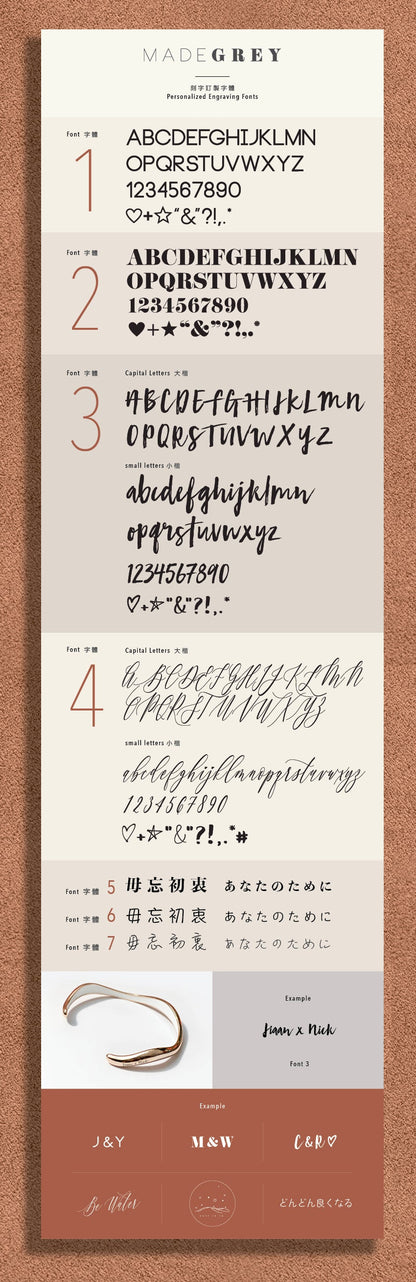 MADEGREY
刻字訂製字體
Personalized Engraving Fonts
Font 字體
1
ABCDEFGHIJKLMN
OPQRSTUVWXYZ
1234567890
♡+☆“&”?!,.*
Font 字體
2
ABCDEFGHIJKLMN
OPQRSTUVWXYZ
1234567890
♥+★“&”?!,.*
Font 字體
3
Capital Letters 大楷
ABCDEFGHIJKLMN
OPQRSTUVWXYZ
small letters 小楷
abcdefghijklmn
opqrstuvwxyz
1234567890
♡+☆“&”?!,.*
Font 字體
4
Capital Letters 大楷
ABCDEFGHIJKLMN
OPQRSTUVWXYZ
small letters 小楷
abcdefghijklmnopqrstuvwxyz
1234567890
♡+☆“&”?!,.*#
Font 字體 5 毋忘初衷 あなたのために
Font 字體 6 毋忘初衷 あなたのために
Font 字體 7 毋忘初衷 あなたのために
Example
Jiaan x Nick
Font 3
Example
J&Y
M&W
C&R♡
Be Water
どんどん良くなる